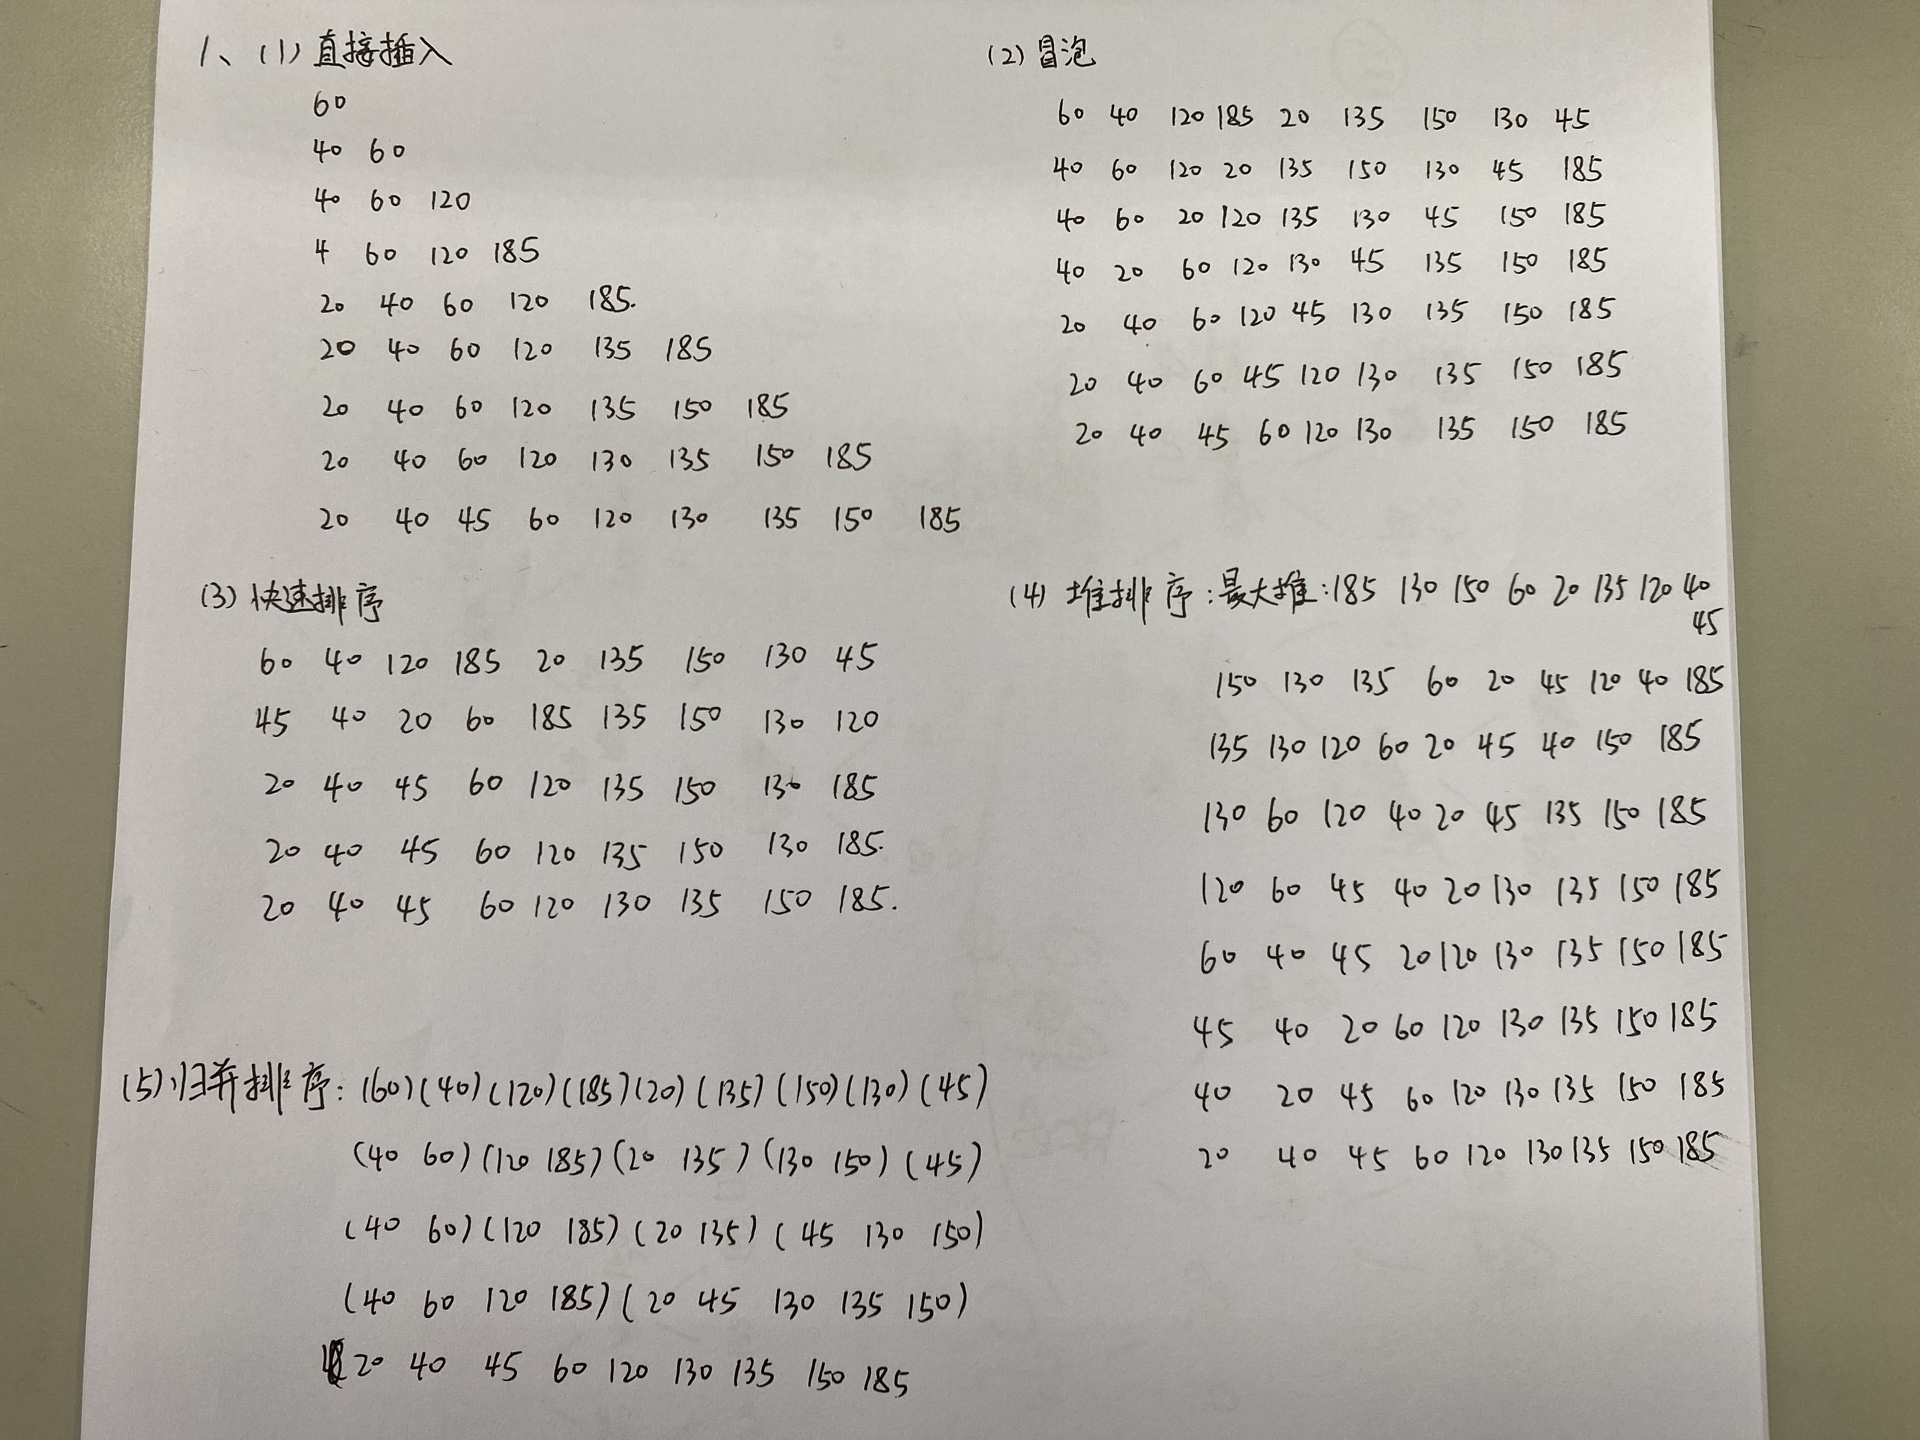 1、(1)直接插入
60
40 60
40 60 120
4 60 120 185
20 40 60 120 185.
20 40 60 120 135 185
20 40 60 120 135 150 185
20 40 60 120 130 135 150 185
20 40 45 60 120 130 135 150 185
(2)冒泡
60 40 120 185 20 135 150 130 45
40 60 120 20 135 150 130 45 185
40 60 20 120 135 130 45 150 185
40 20 60 120 130 45 135 150 185
20 40 60 120 45 130 135 150 185
20 40 60 45 120 130 135 150 185
20 40 45 60 120 130 135 150 185
(3)快速排序
60 40 120 185 20 135 150 130 45
45 40 20 60 185 135 150 130 120
20 40 45 60 120 135 150 130 185
20 40 45 60 120 135 150 130 185.
20 40 45 60 120 130 135 150 185.
(4) 堆排序:最大堆:185 130 150 60 20 135 120 40
45
150 130 135 60 20 45 120 40 185
135 130 120 60 20 45 40 150 185
130 60 120 40 20 45 135 150 185
120 60 45 40 20 130 135 150 185
60 40 45 20 120 130 135 150 185
45 40 20 60 120 130 135 150 185
40 20 45 60 120 130 135 150 185
20 40 45 60 120 130 135 150 185
(5)归并排序:(60)(40)(120)(185)(20)(135)(150)(130)(45)
(40 60)(120 185)(20 135)(130 150)(45)
(40 60)(120 185)(20 135)(45 130 150)
(40 60 120 185)(20 45 130 135 150)
20 40 45 60 120 130 135 150 185